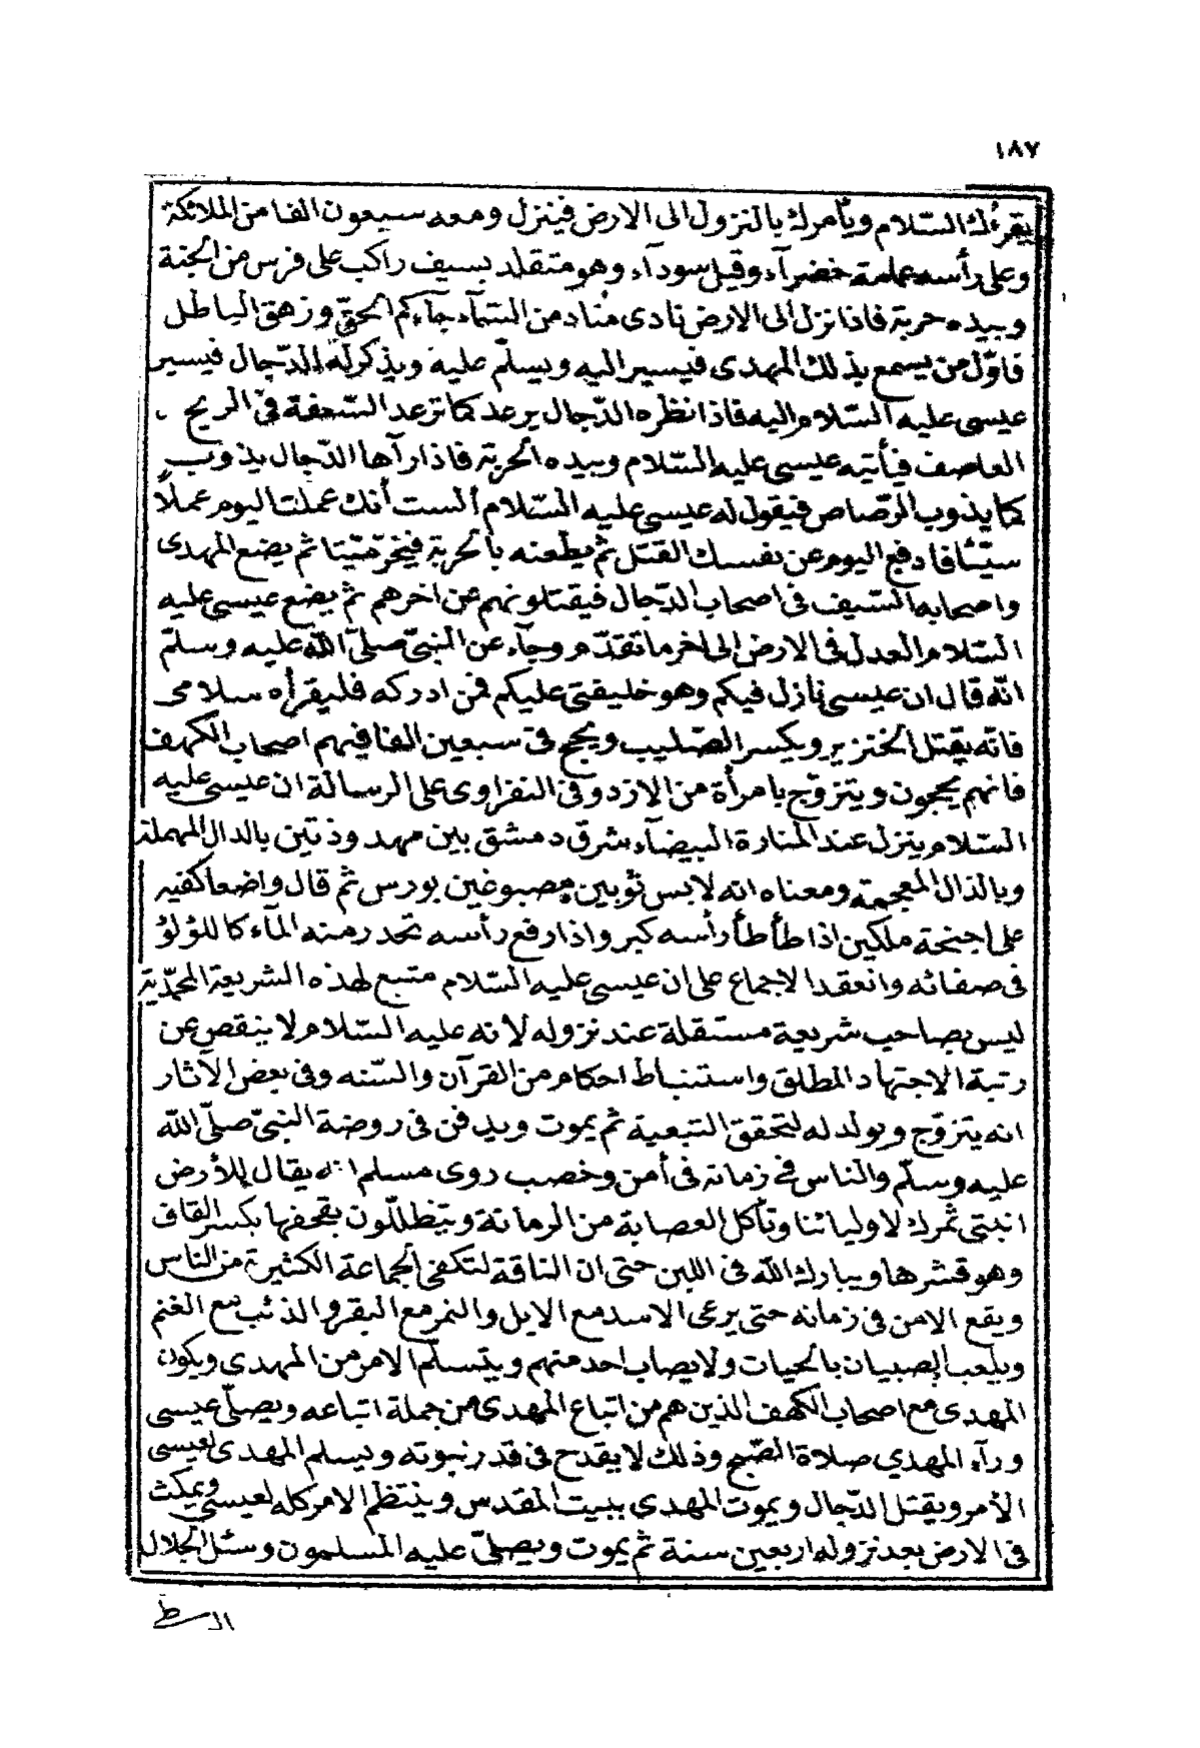 ١٨٧
يقرءك السّلام ويأمرك بالنزول الى الارض فينزل ومعه سبعون الفا من الملائكة
وعلى رأسه عمامة خضرآء وقيل سودآء وهو متقلد بسيف راكب على فرس من الجنة
وبيده حربة فاذا نزل الى الارض نادى مناد من السّمآء جآءكم الحق وزهق الباطل
فاوّل من يسمع بذلك المهدى فيسير اليه ويسلّم عليه ويذكر له الدّجال فيسير
عيسى عليه السّلام اليه فاذا نظره الدّجال يرعد كما ترعد السّعفة فى الريح
العاصف فيأتيه عيسى عليه السّلام وبيده الحربة فاذا رآها الدّجال يذوب
كما يذوب الرّصاص فيقول له عيسى عليه السّلام ألست أنك عملت اليوم عملاً
سيّئا فادفع اليوم عن نفسك القتل ثم يطعنه بالحربة فيخرّ ميّتا ثم يضع المهدى
واصحابه السّيف فى اصحاب الدّجال فيقتلونهم عن اخرهم ثم يضع عيسى عليه
السّلام العدل فى الارض الى اخر ما تقدّم وجآء عن النبىّ صلىّ اللّه عليه وسلّم
انّه قال ان عيسى نازل فيكم وهو خليفتى عليكم فمن ادركه فليقرأه سلامى
فانّه يقتل الخنزير ويكسر الصّليب ويحج فى سبعين الفا فيهم اصحاب الكهف
فانهم يحجون ويتزوّج بامرأة من الازد وفى النفزاوى على الرسالة ان عيسى عليه
السّلام ينزل عند المنارة البيضآء شرق دمشق بين مهد وذتين بالدال المهملة
وبالذال المعجمة ومعناه انه لابس ثوبين مصبوغين بورس ثم قال واضعا كفيه
على اجنحة ملكين اذا طأطأ رأسه كبر واذا رفع رأسه تحدر منه المآء كاللؤلؤ
فى صفائه وانعقد الاجماع على ان عيسى عليه السّلام متبع لهذه الشريعة المحمّدية
ليس بصاحب شريعة مستقلة عند نزوله لانه عليه السّلام لا ينقص عن
رتبة الاجتهاد المطلق واستنباط احكام من القرآن والسّنه وفى بعض الآثار
انه يتزوّج ويولد له لتحقق التبعية ثم يموت ويدفن فى روضة النبىّ صلىّ اللّه
عليه وسلّم والناس فى زمانه فى أمن وخصب روى مسلم انه يقال للأرض
انبتى ثمرك لاوليائنا وتأكل العصابة من الرمانة ويتظللّون بقحفها بكسر القاف
وهو قشرها ويبارك اللّه فى اللبن حتى ان الناقة لتكفى الجماعة الكثيرة من الناس
ويقع الامن فى زمانه حتى يرعى الاسد مع الابل والنمر مع البقر والذئب مع الغنم
ويلعب الصبيان بالحيات ولا يصاب احد منهم ويتسلّم الامر من المهدى ويكون
المهدى مع اصحاب الكهف الذين هم من اتباع المهدى من جملة اتباعه ويصلىّ عيسى
ورآء المهدي صلاة الصّبح وذلك لا يقدح فى قدر نبوته ويسلم المهدى لعيسى
الأمر ويقتل الدّجال ويموت المهدى ببيت المقدس وينتظم الامر كله لعيسى ويمكث
فى الارض بعد نزوله اربعين سنة ثم يموت ويصلىّ عليه المسلمون وسئل الجلال